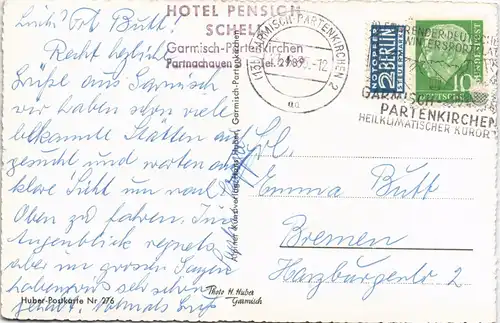 HOTEL PENSION
SCHELL
Garmisch-Partenkirchen
Partnachauen Tel. 2989
(13b) GARMISCH-PARTENKIRCHEN 2
-12
aa
NOTOPFER
2 BERLIN
STEUERMARKE
10
DEUTSCHE
WINTERSPORT
GARMISCH
PARTENKIRCHEN
HEILKLIMATISCHER KURORT
Liebes Frl. Butt!
Recht herzliche
Grüße aus Garmisch
wir haben schon viele
bekannte Stätten auf-
gesucht und warten auf
klare Sicht um nach
Oben zu fahren. Im
Augenblick regnets
aber im grossen Ganzen
haben wir sehr schön
gehabt. Nochmals Gruß
Frl.
Emma Butt
Bremen
Harzburgerstr 2
Huber-Postkarte Nr 276
Photo H. Huber
Garmisch
Garmisch-Partenkirchen